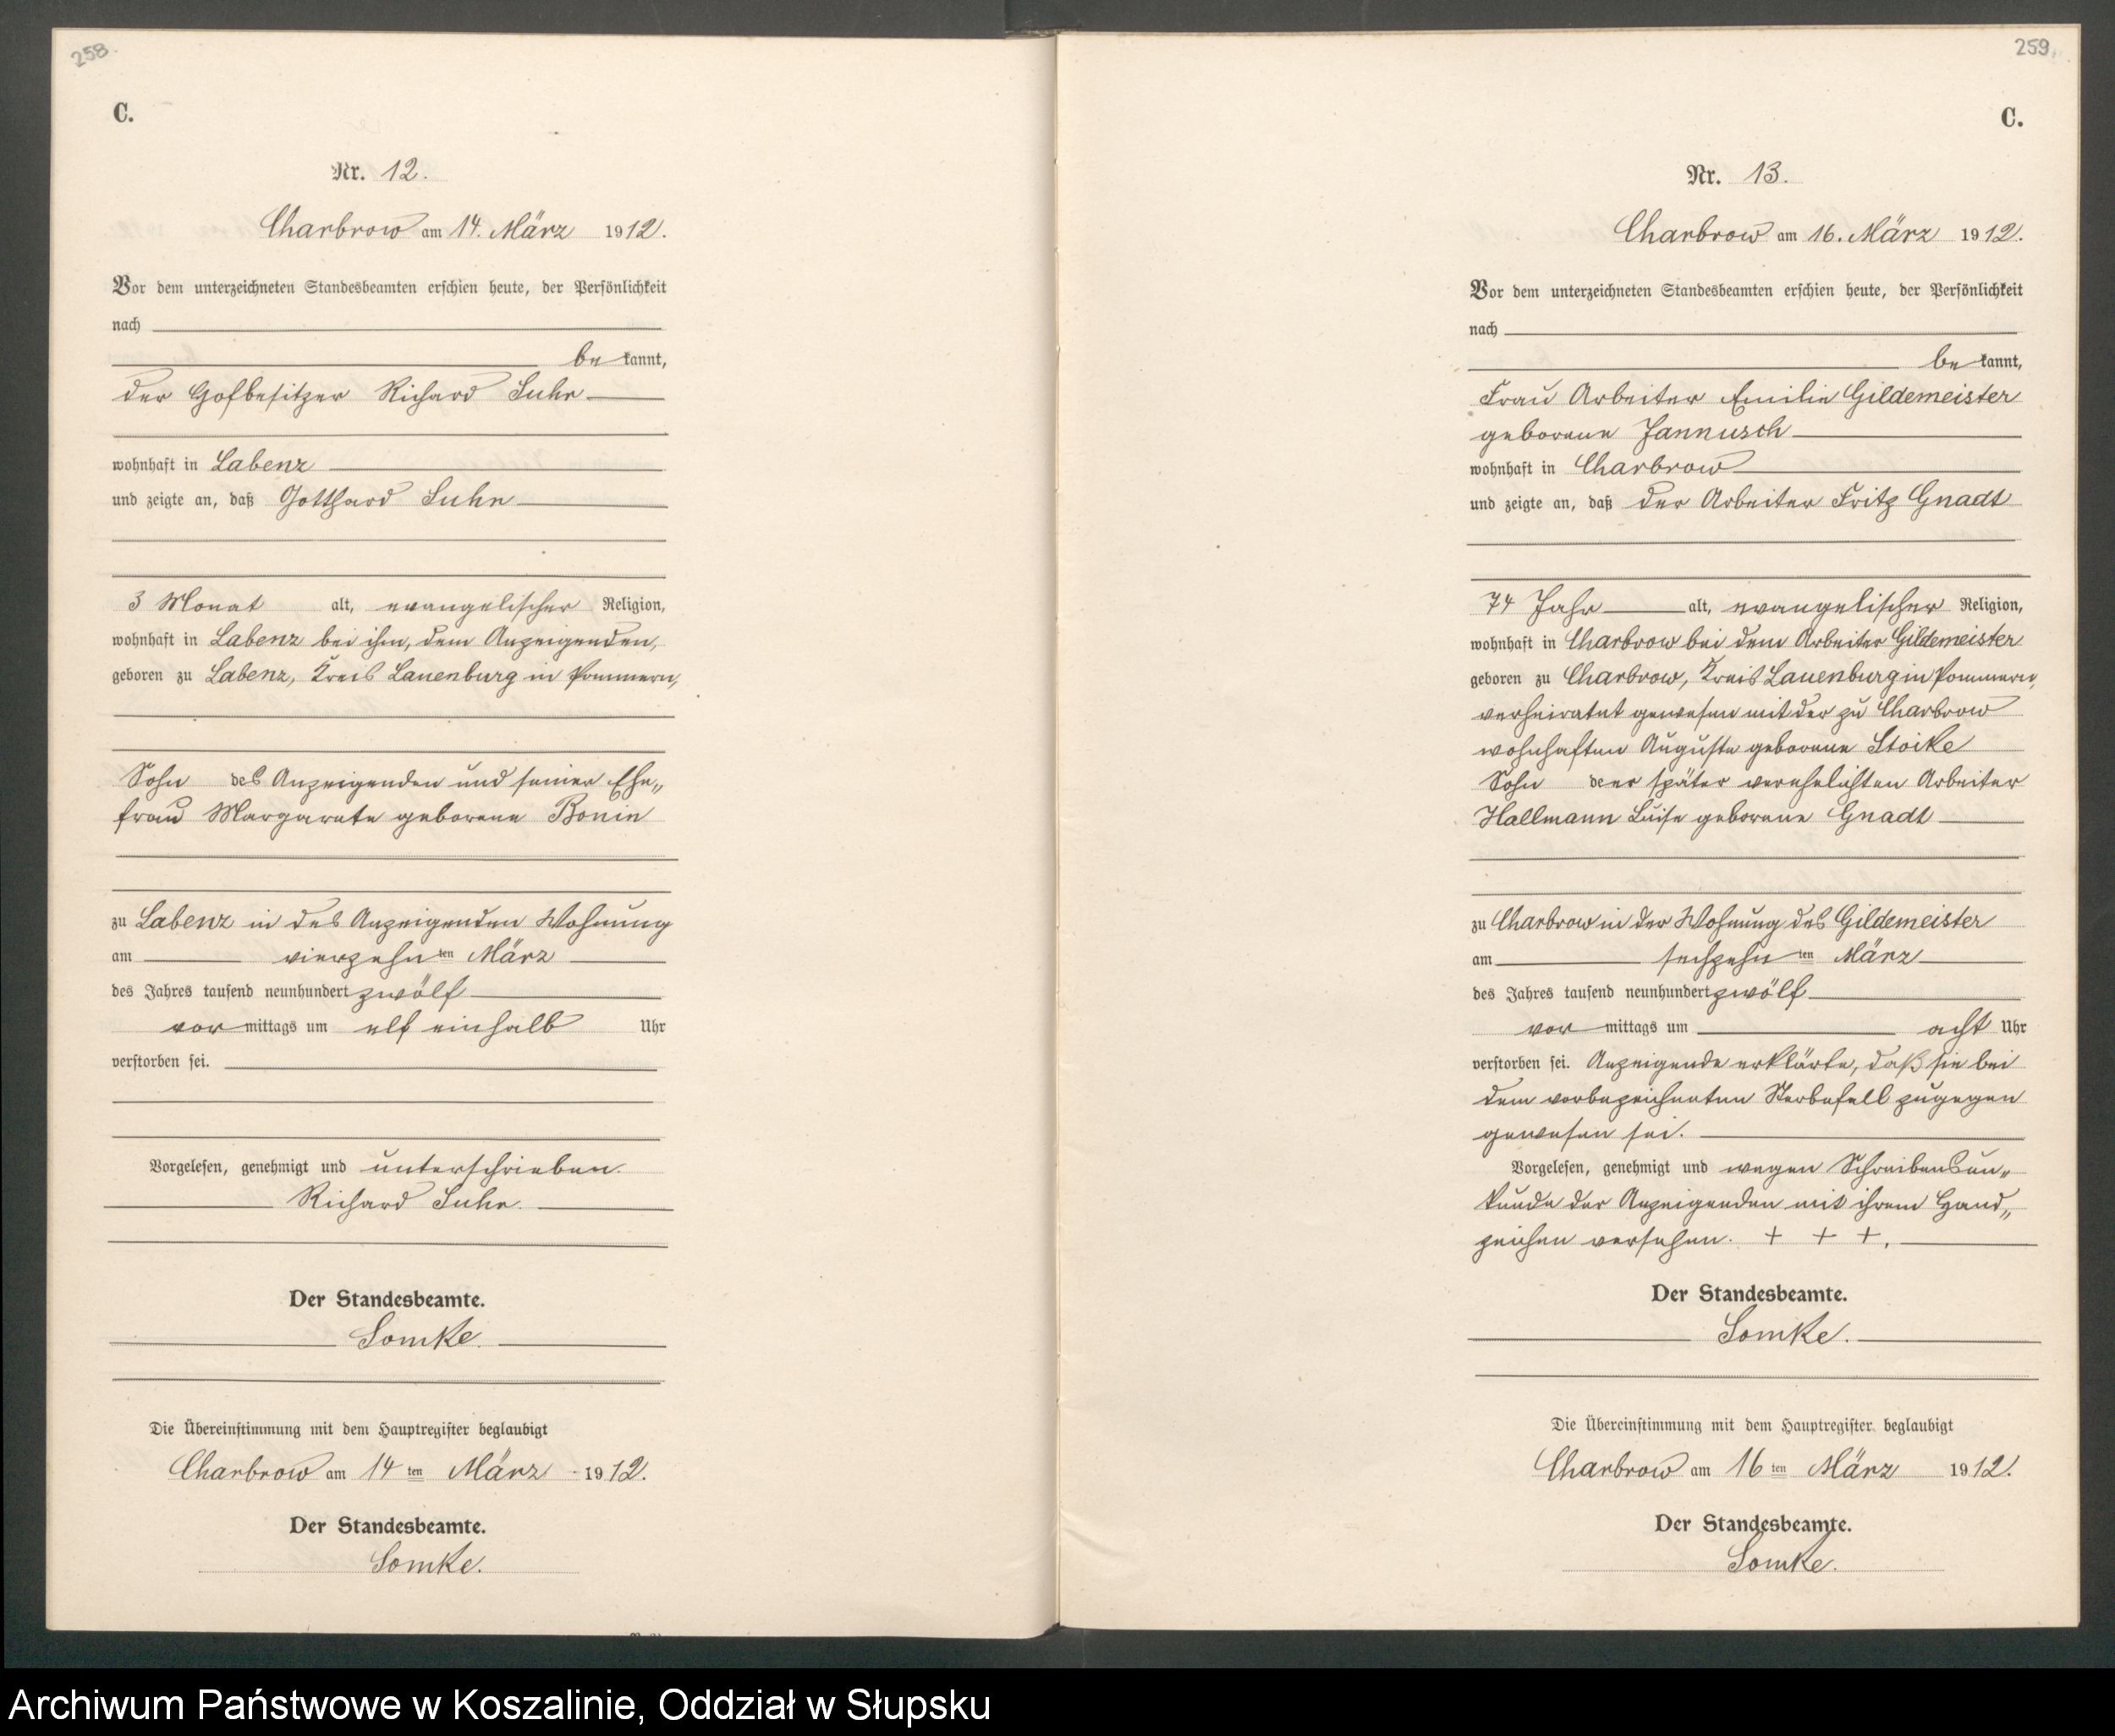 258.
C.
Nr. 12.
Charbrow am 14. März 1912.
Vor dem unterzeichneten Standesbeamten erschien heute, der Persönlichkeit
nach
be kannt,
der Hofbesitzer Richard Suhr
wohnhaft in Labenz
und zeigte an, daß Gotthard Suhr
3 Monat alt, evangelischer Religion,
wohnhaft in Labenz bei ihm, dem Anzeigenden,
geboren zu Labenz, Kreis Lauenburg in Pommern,
Sohn des Anzeigenden und seiner Ehe„
frau Margarete geborene Bonin
zu Labenz in des Anzeigenden Wohnung
am vierzehn ten März
des Jahres tausend neunhundert zwölf
vor mittags um elf einhalb Uhr
verstorben sei.
Vorgelesen, genehmigt und unterschrieben.
Richard Suhr.
Der Standesbeamte.
Somke.
Die Übereinstimmung mit dem Hauptregister beglaubigt
Charbrow am 14 ten März 1912.
Der Standesbeamte.
Somke.
259.
C.
Nr. 13.
Charbrow am 16. März 1912.
Vor dem unterzeichneten Standesbeamten erschien heute, der Persönlichkeit
nach
be kannt,
Frau Arbeiter Emilie Gildemeister
geborene Jannusch
wohnhaft in Charbrow
und zeigte an, daß der Arbeiter Fritz Gnadt
74 Jahr alt, evangelischer Religion,
wohnhaft in Charbrow bei dem Arbeiter Gildemeister
geboren zu Charbrow, Kreis Lauenburg in Pommern,
verheiratet gewesen mit der zu Charbrow
wohnhaften Auguste geborene Stoike
Sohn der später verehelichten Arbeiter
Hallmann Luise geborene Gnadt
zu Charbrow in der Wohnung des Gildemeister
am sechzehn ten März
des Jahres tausend neunhundert zwölf
vor mittags um acht Uhr
verstorben sei. Anzeigende erklärte, daß sie bei
dem vorbezeichneten Sterbefall zugegen
gewesen sei.
Vorgelesen, genehmigt und wegen Schreibensun„
kunde der Anzeigenden mit ihrem Hand„
zeichen versehen. + + +.
Der Standesbeamte.
Somke.
Die Übereinstimmung mit dem Hauptregister beglaubigt
Charbrow am 16 ten März 1912.
Der Standesbeamte.
Somke.
Archiwum Państwowe w Koszalinie, Oddział w Słupsku